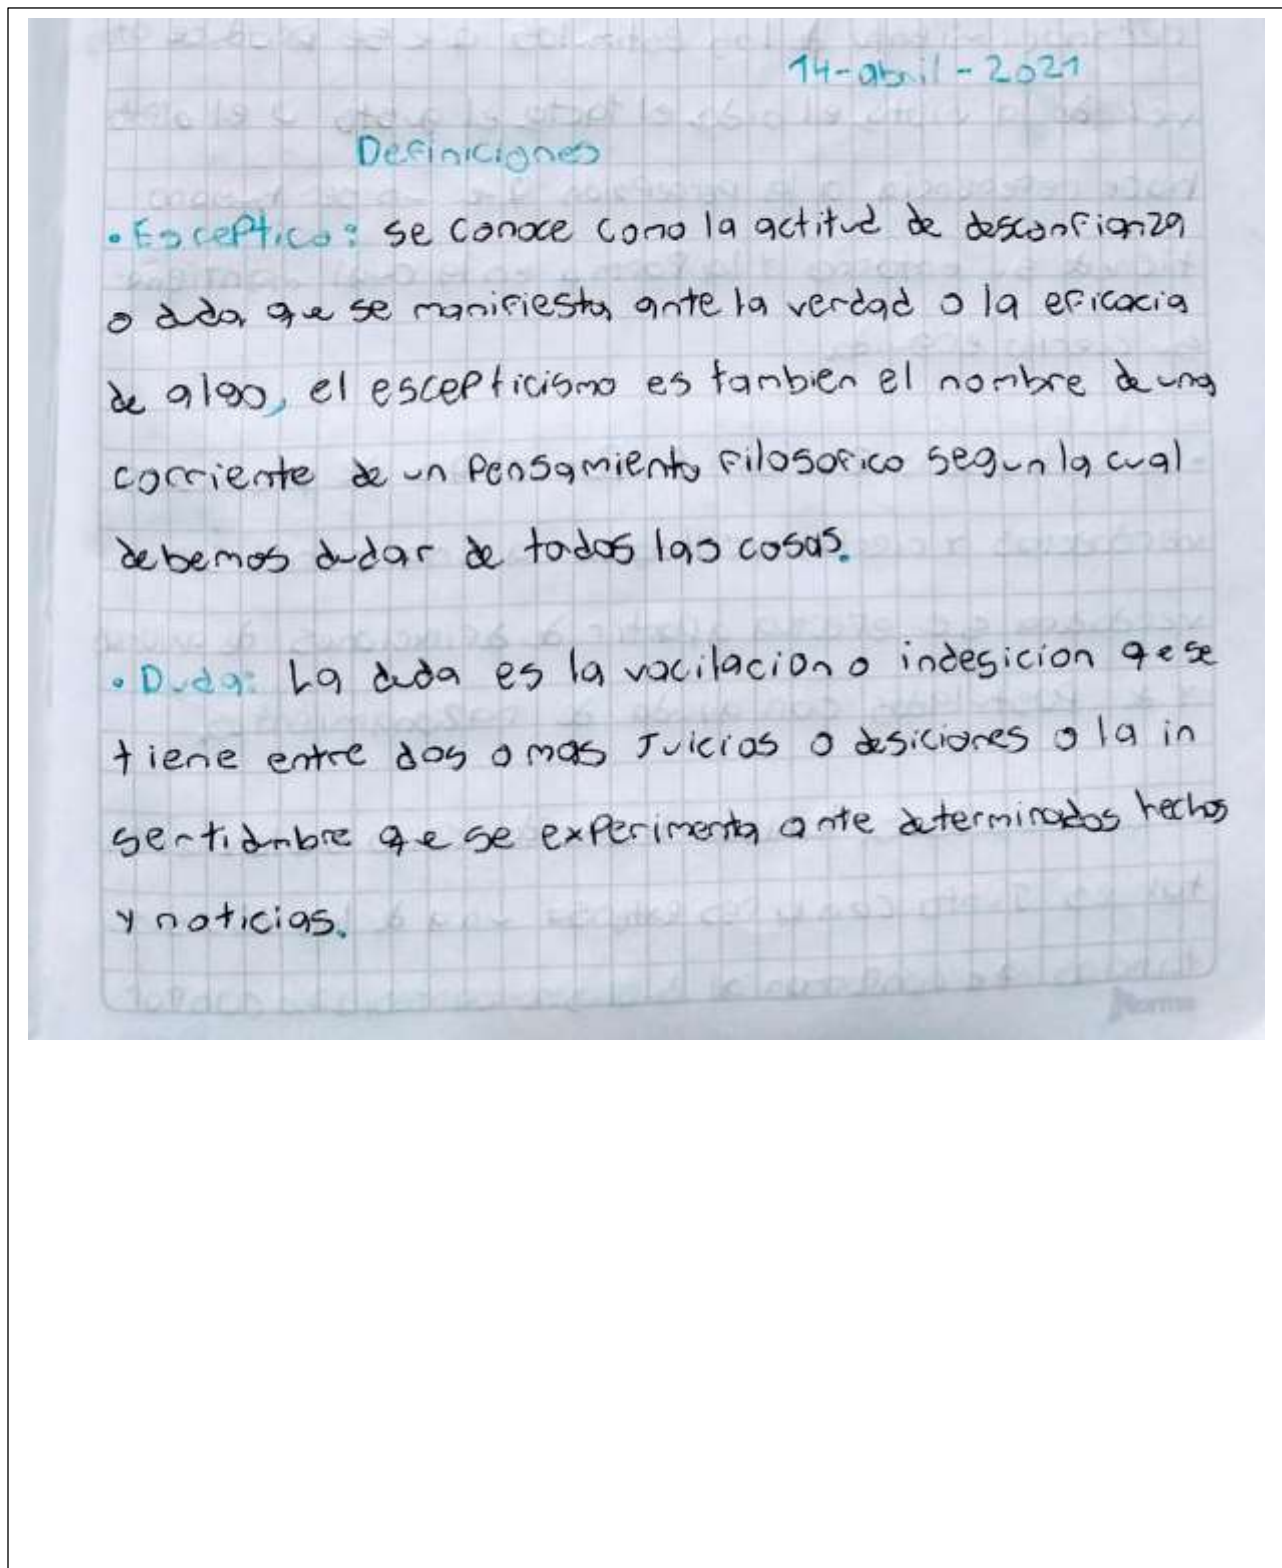 14-abril-2021
Definiciones
• Esceptico: se conoce como la actitud de desconfianza
o duda que se manifiesta ante la verdad o la eficacia
de algo, el escepticismo es tambien el nombre de una
corriente de un Pensamiento filosofico segun la cual
debemos dudar de todas las cosas.
• Duda: La duda es la vacilacion o indesicion qe se
tiene entre dos o mas Juicios o desiciones o la in
sertidumbre qe se experimenta ante determinados hechos
y noticias.
Norma